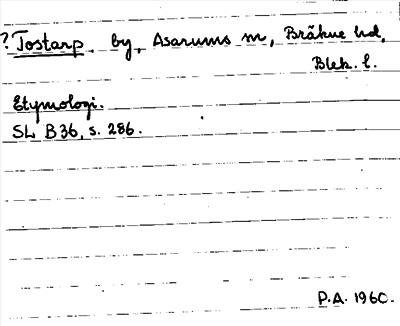 ? Tostarp, by, Asarums sn, Bräkne hd,
Blek. l.
Etymologi.
SL B36, s. 286.
P.A. 1960.